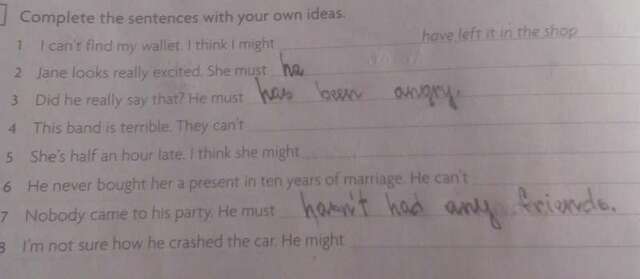 Complete the sentences with your own ideas.
1 I can't find my wallet. I think I might have left it in the shop
2 Jane looks really excited. She must ha
3 Did he really say that? He must has been angry.
4 This band is terrible. They can't
5 She's half an hour late. I think she might
6 He never bought her a present in ten years of marriage. He can't
7 Nobody came to his party. He must haven't had any friends.
8 I'm not sure how he crashed the car. He might